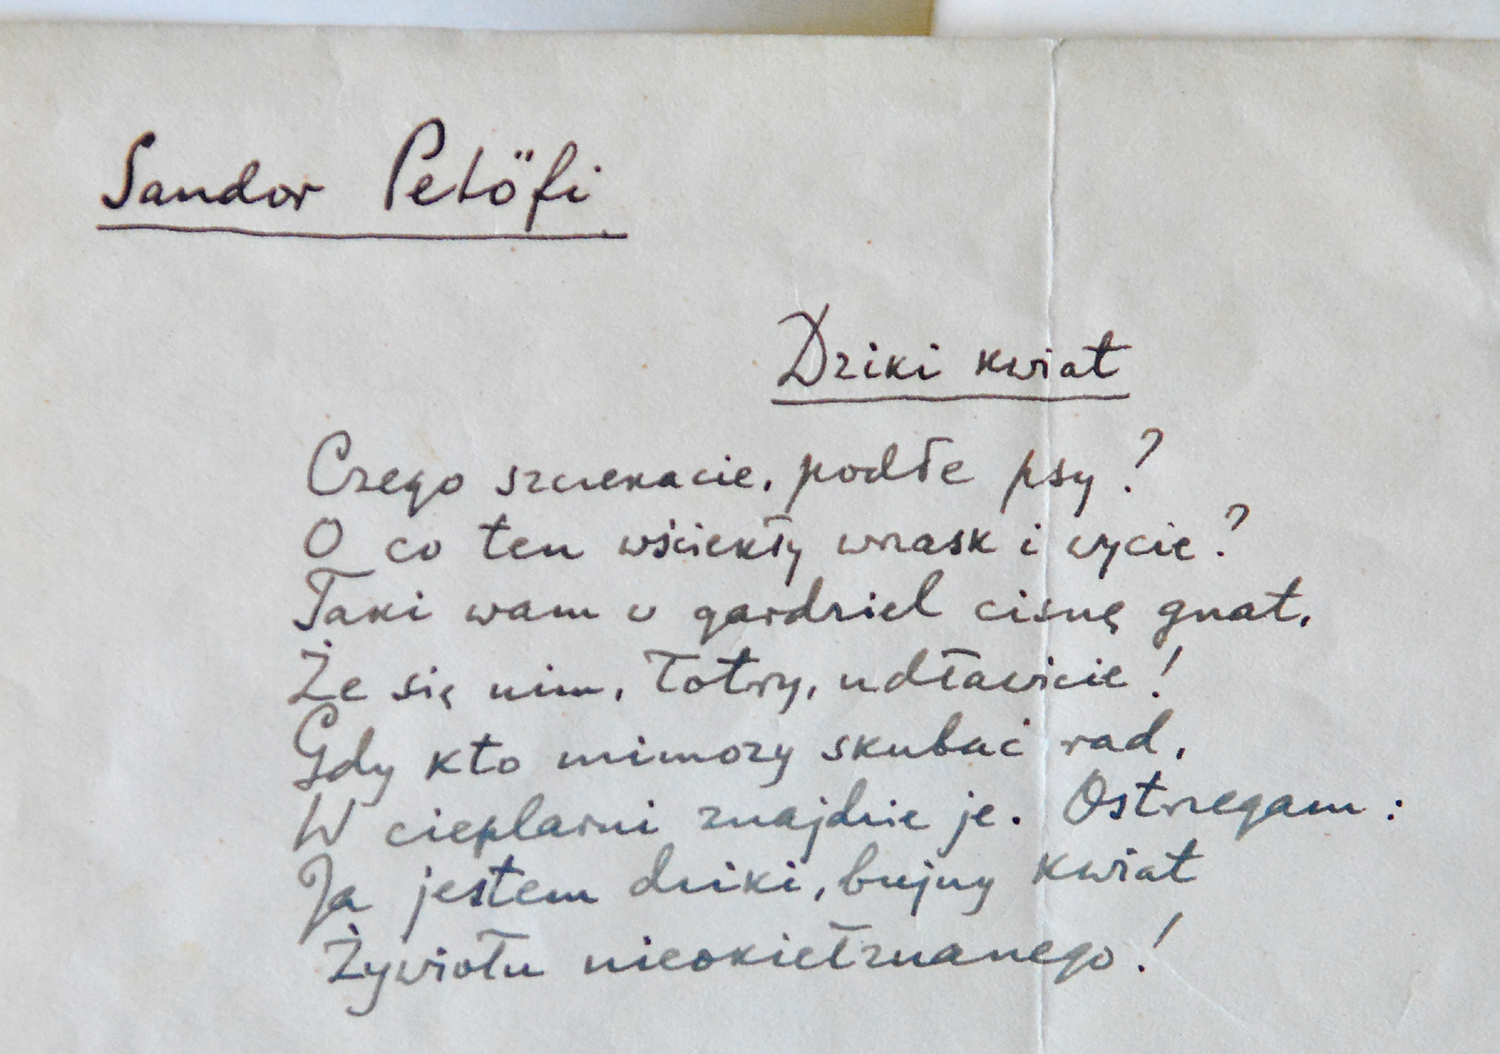 Sandor Petöfi
Dziki kwiat
Czego szczekacie, podłe psy?
O co ten wściekły wrzask i wycie?
Taki wam w gardziel cisnę gnat,
Że się nim, łotry, udławicie!
Gdy kto mimozy skubać rad,
W cieplarni znajdzie je. Ostrzegam:
Ja jestem dziki, bujny kwiat
Żywiołu nieokiełznanego!